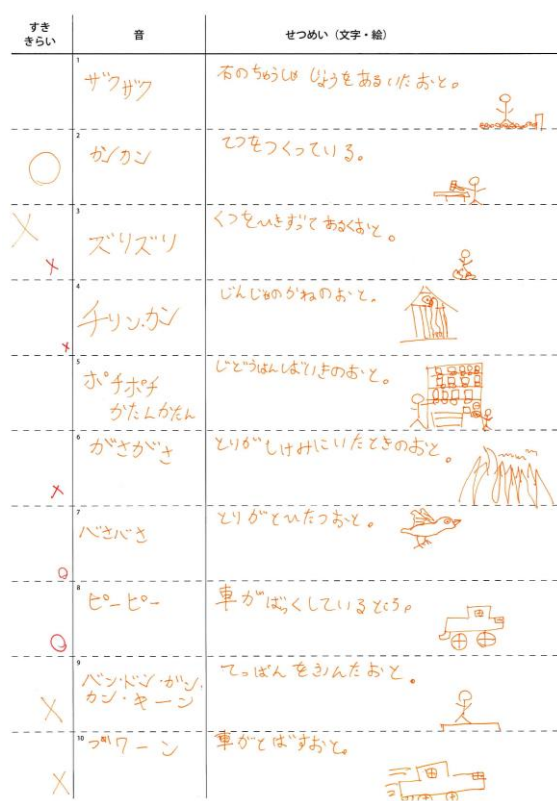 すき
きらい
音
せつめい（文字・絵）
1
ザクザク
石のちゅうしゃじょうをあるいたおと。
2
○
カンカン
てつをつくっている。
3
×
×
ズリズリ
くつをひきずってあるくおと。
4
×
チリン・カン
じんじゃのかねのおと。
5
ポチポチ
がたんがたん
じどうはんばいきのおと。
6
×
がさがさ
とりがしげみにいたときのおと。
7
○
ばさばさ
とりがとびたつおと。
8
○
ピーピー
車がばっくしているところ。
9
×
バン・ドン・ガン・
カン・キーン
てっぱんをふんだおと。
10
×
ブワーン
車がとばすおと。